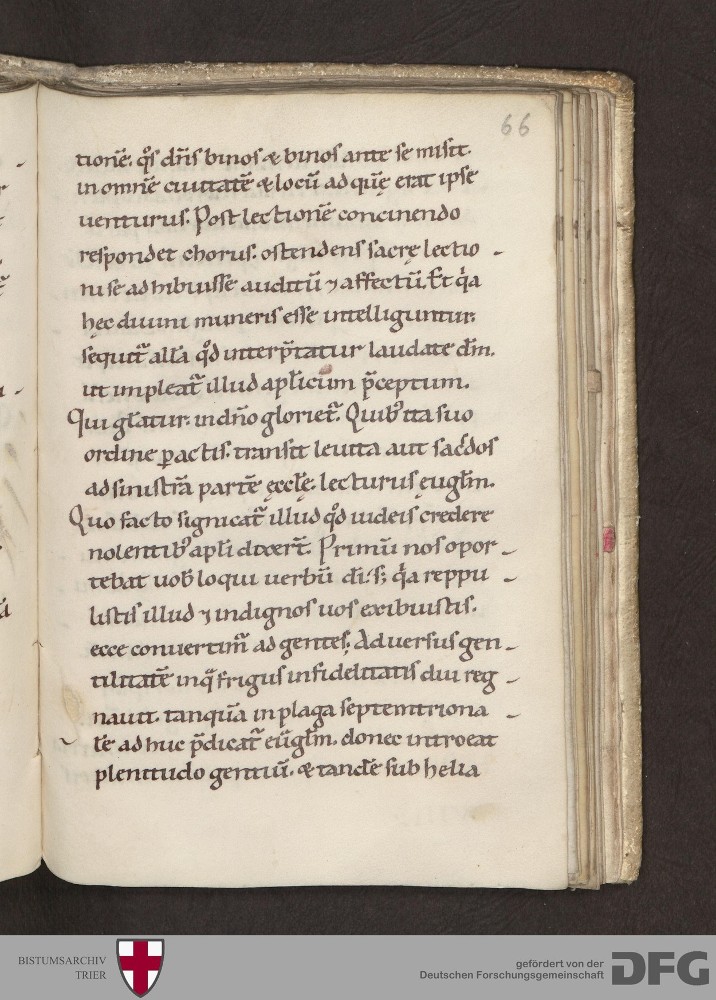 66
tionē. q̊s dn̄s binos & binos ante se misit.
in omnē ciuitatē & locū ad quę̄ erat ipse
uenturus. Post lectionē concinendo
respondet chorus. ostendens sacrę lectio -
ni se adhibuisse auditū ⁊ affectū. Et q̇a
hęc diuini muneris esse intelliguntur.
sequit᷑ all̄a q̊d interp̄tatur laudate dn̄m.
ut impleat᷑ illud apl̄icum p̄ceptum.
Qui gl̄atur. in dn̄o gloriet᷑. Quib᷒ ita suo
ordine ꝑactis. transit leuita aut sac̄dos
ad sinistrā partē ęccl̄ę. lecturus eugl̄m.
Quo facto signicat᷑ illud q̊d iudeis credere
nolentib᷒ apl̄i dixer̄t. Primū nos opor -
tebat uob̄ loqui uerbū di. s; q̇a reppu -
listis illud ⁊ indignos uos exibuistis.
ecce conuertim᷒ ad gentes. Aduersus gen -
tilitatē in qua frigus infidelitatis diu reg -
nauit. tanquā in plaga septemtriona -
le adhuc p̄dicat᷑ eūgl̄m. donec introeat
plenitudo gentiū. & tandē sub helia
BISTUMSARCHIV
TRIER
gefördert von der
Deutschen Forschungsgemeinschaft
DFG